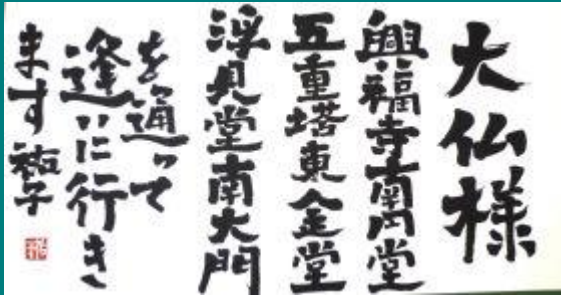 大仏様
興福寺南円堂
五重塔東金堂
浮見堂南大門
を通って
逢いに行き
ます 祐子